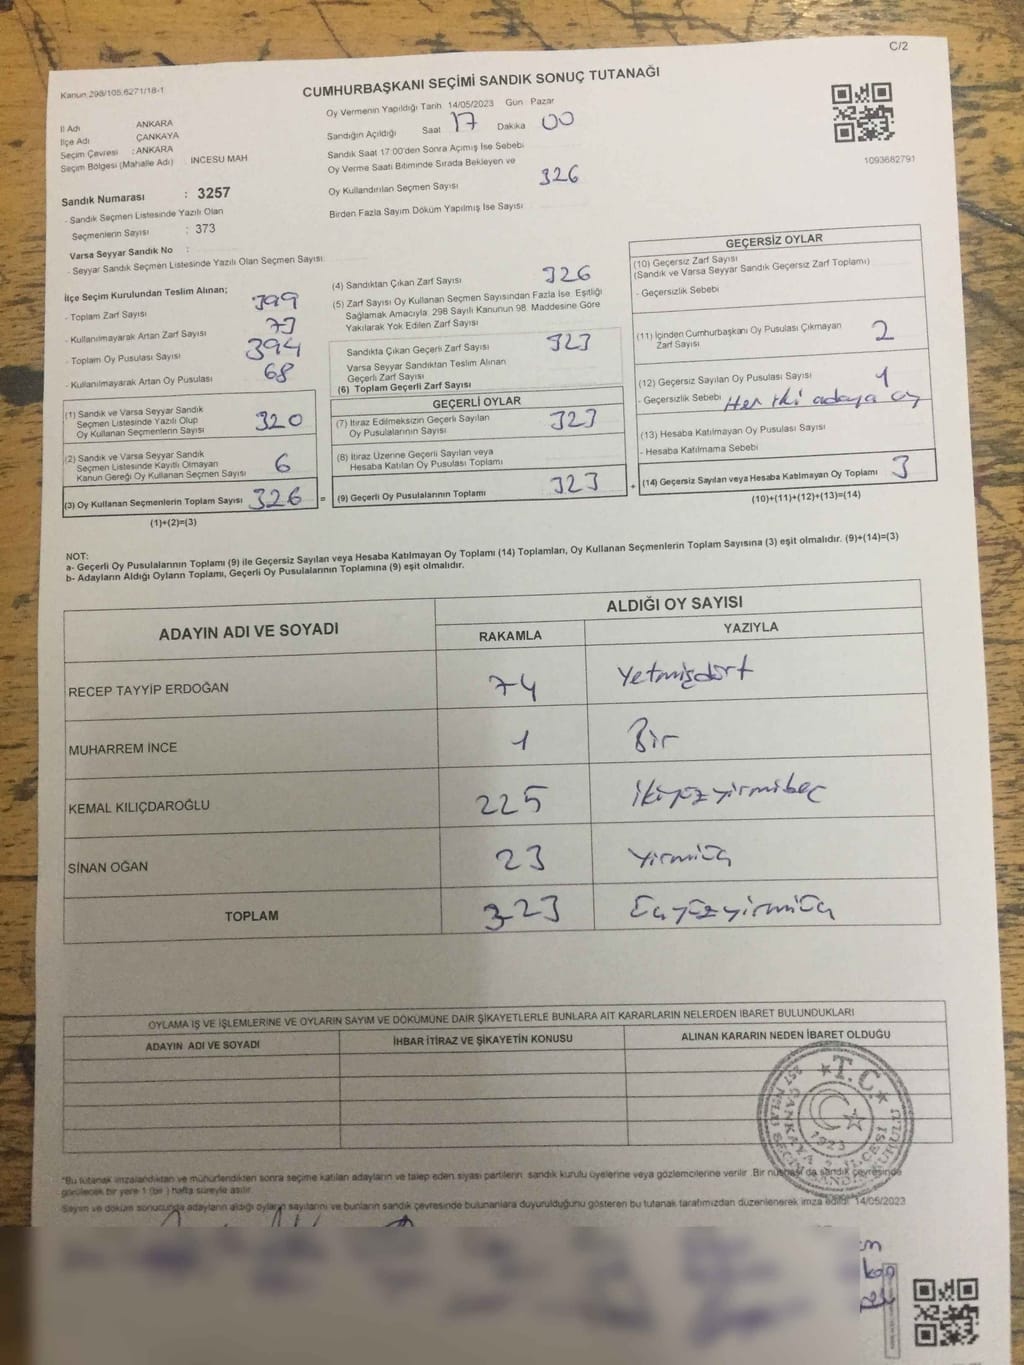 C/2
Kanun 298/105,6271/18-1
CUMHURBAŞKANI SEÇİMİ SANDIK SONUÇ TUTANAĞI
Oy Vermenin Yapıldığı Tarih 14/05/2023 Gün Pazar
İl Adı ANKARA
İlçe Adı ÇANKAYA
Seçim Çevresi : ANKARA
Seçim Bölgesi (Mahalle Adı) : İNCESU MAH
Sandığın Açıldığı Saat 17 Dakika 00
Sandık Saat 17:00'den Sonra Açımış İse Sebebi
Oy Verme Saati Bitiminde Sırada Bekleyen ve
Oy Kullandırılan Seçmen Sayısı 326
Birden Fazla Sayım Döküm Yapılmış İse Sayısı
1093682791
Sandık Numarası : 3257
- Sandık Seçmen Listesinde Yazılı Olan
Seçmenlerin Sayısı : 373
Varsa Seyyar Sandık No :
- Seyyar Sandık Seçmen Listesinde Yazılı Olan Seçmen Sayısı:
İlçe Seçim Kurulundan Teslim Alınan;
- Toplam Zarf Sayısı 399
- Kullanılmayarak Artan Zarf Sayısı 73
- Toplam Oy Pusulası Sayısı 394
- Kullanılmayarak Artan Oy Pusulası 68
(1) Sandık ve Varsa Seyyar Sandık
Seçmen Listesinde Yazılı Olup
Oy Kullanan Seçmenlerin Sayısı 320
(2) Sandık ve Varsa Seyyar Sandık
Seçmen Listesinde Kayıtlı Olmayan
Kanun Gereği Oy Kullanan Seçmen Sayısı 6
(3) Oy Kullanan Seçmenlerin Toplam Sayısı 326 =
(1)+(2)=(3)
(4) Sandıktan Çıkan Zarf Sayısı 326
(5) Zarf Sayısı Oy Kullanan Seçmen Sayısından Fazla İse Eşitliği
Sağlamak Amacıyla 298 Sayılı Kanunun 98. Maddesine Göre
Yakılarak Yok Edilen Zarf Sayısı
Sandıkta Çıkan Geçerli Zarf Sayısı 323
Varsa Seyyar Sandıktan Teslim Alınan
Geçerli Zarf Sayısı
(6) Toplam Geçerli Zarf Sayısı
GEÇERLİ OYLAR
(7) İtiraz Edilmeksizin Geçerli Sayılan
Oy Pusulalarının Sayısı 323
(8) İtiraz Üzerine Geçerli Sayılan veya
Hesaba Katılan Oy Pusulası Toplamı
(9) Geçerli Oy Pusulalarının Toplamı 323 +
GEÇERSİZ OYLAR
(10) Geçersiz Zarf Sayısı
(Sandık ve Varsa Seyyar Sandık Geçersiz Zarf Toplamı)
- Geçersizlik Sebebi
(11) İçinden Cumhurbaşkanı Oy Pusulası Çıkmayan
Zarf Sayısı 2
(12) Geçersiz Sayılan Oy Pusulası Sayısı 1
- Geçersizlik Sebebi Her iki adaya oy
(13) Hesaba Katılmayan Oy Pusulası Sayısı
- Hesaba Katılmama Sebebi
(14) Geçersiz Sayılan veya Hesaba Katılmayan Oy Toplamı 3
(10)+(11)+(12)+(13)=(14)
NOT:
a- Geçerli Oy Pusulalarının Toplamı (9) ile Geçersiz Sayılan veya Hesaba Katılmayan Oy Toplamı (14) Toplamları, Oy Kullanan Seçmenlerin Toplam Sayısına (3) eşit olmalıdır. (9)+(14)=(3)
b- Adayların Aldığı Oyların Toplamı, Geçerli Oy Pusulalarının Toplamına (9) eşit olmalıdır.
ADAYIN ADI VE SOYADI
ALDIĞI OY SAYISI
RAKAMLA YAZIYLA
RECEP TAYYİP ERDOĞAN 74 Yetmişdört
MUHARREM İNCE 1 Bir
KEMAL KILIÇDAROĞLU 225 ikiyüzyirmibeş
SİNAN OĞAN 23 Yirmiüç
TOPLAM 323 Üçyüzyirmiüç
OYLAMA İŞ VE İŞLEMLERİNE VE OYLARIN SAYIM VE DÖKÜMÜNE DAİR ŞİKAYETLERLE BUNLARA AİT KARARLARIN NELERDEN İBARET BULUNDUKLARI
ADAYIN ADI VE SOYADI İHBAR İTİRAZ VE ŞİKAYETİN KONUSU ALINAN KARARIN NEDEN İBARET OLDUĞU
T.C.
1923
*Bu tutanak imzalandıktan ve mühürlendikten sonra seçime katılan adayların ve talep eden siyasi partilerin sandık kurulu üyelerine veya gözlemcilerine verilir. Bir nüshası da sandık çevresinde
görülecek bir yere 1 (bir) hafta süreyle asılır.
Sayım ve döküm sonucunda adayların aldığı oyların sayılarını ve bunların sandık çevresinde bulunanlara duyurulduğunu gösteren bu tutanak tarafımızdan düzenlenerek imza edildi. 14/05/2023